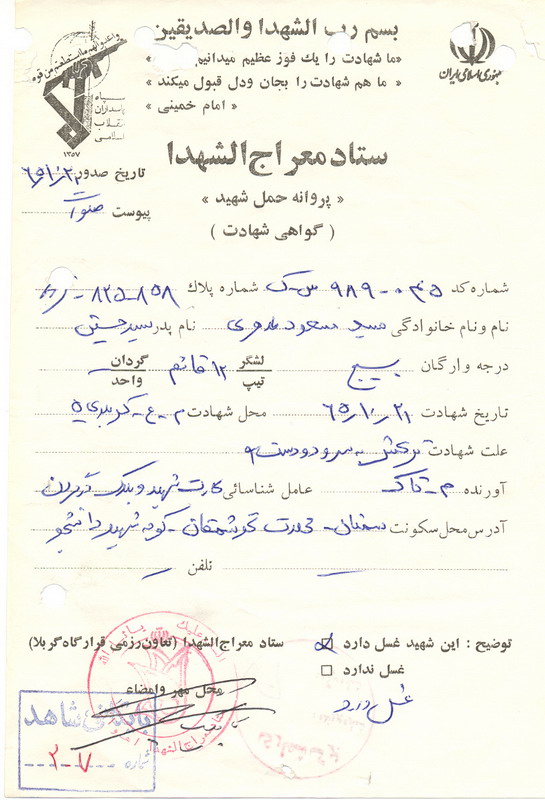 بسم رب الشهدا والصدیقین
«ما شهادت را یك فوز عظیم میدانیم»
« ما هم شهادت را بجان ودل قبول میکند »
« امام خمینی »
جمهوری اسلامی ایران
واعدوا لهم ما استطعتم من قوه
سپاه پاسداران انقلاب اسلامی
۱۳۵۷
ستاد معراج الشهدا
تاریخ صدور
« پروانه حمل شهید »
پیوست
( گواهی شهادت )
شماره کد ۹۸۹ شماره پلاك ۸۵۸-۸۳۵
نام و نام خانوادگی سید مسعود نام پدر سید حسین
درجه و ارگان بسیج لشگر تیپ ۱۲ قائم گردان واحد
تاریخ شهادت ۶۵/۱۰/۲۱ محل شهادت کربلای ۵
علت شهادت ترکش به سر و دودست
آورنده عامل شناسائی کارت شهید و پلاک
آدرس محل سکونت سمنان - کوچه شهید دانشجو
تلفن
توضیح : این شهید غسل دارد
ستاد معراج الشهدا (تعاون رزمی قرارگاه کربلا)
غسل ندارد
محل مهر و امضاء
غسل دارد
بایگانی شاهد
شماره ۲-۷